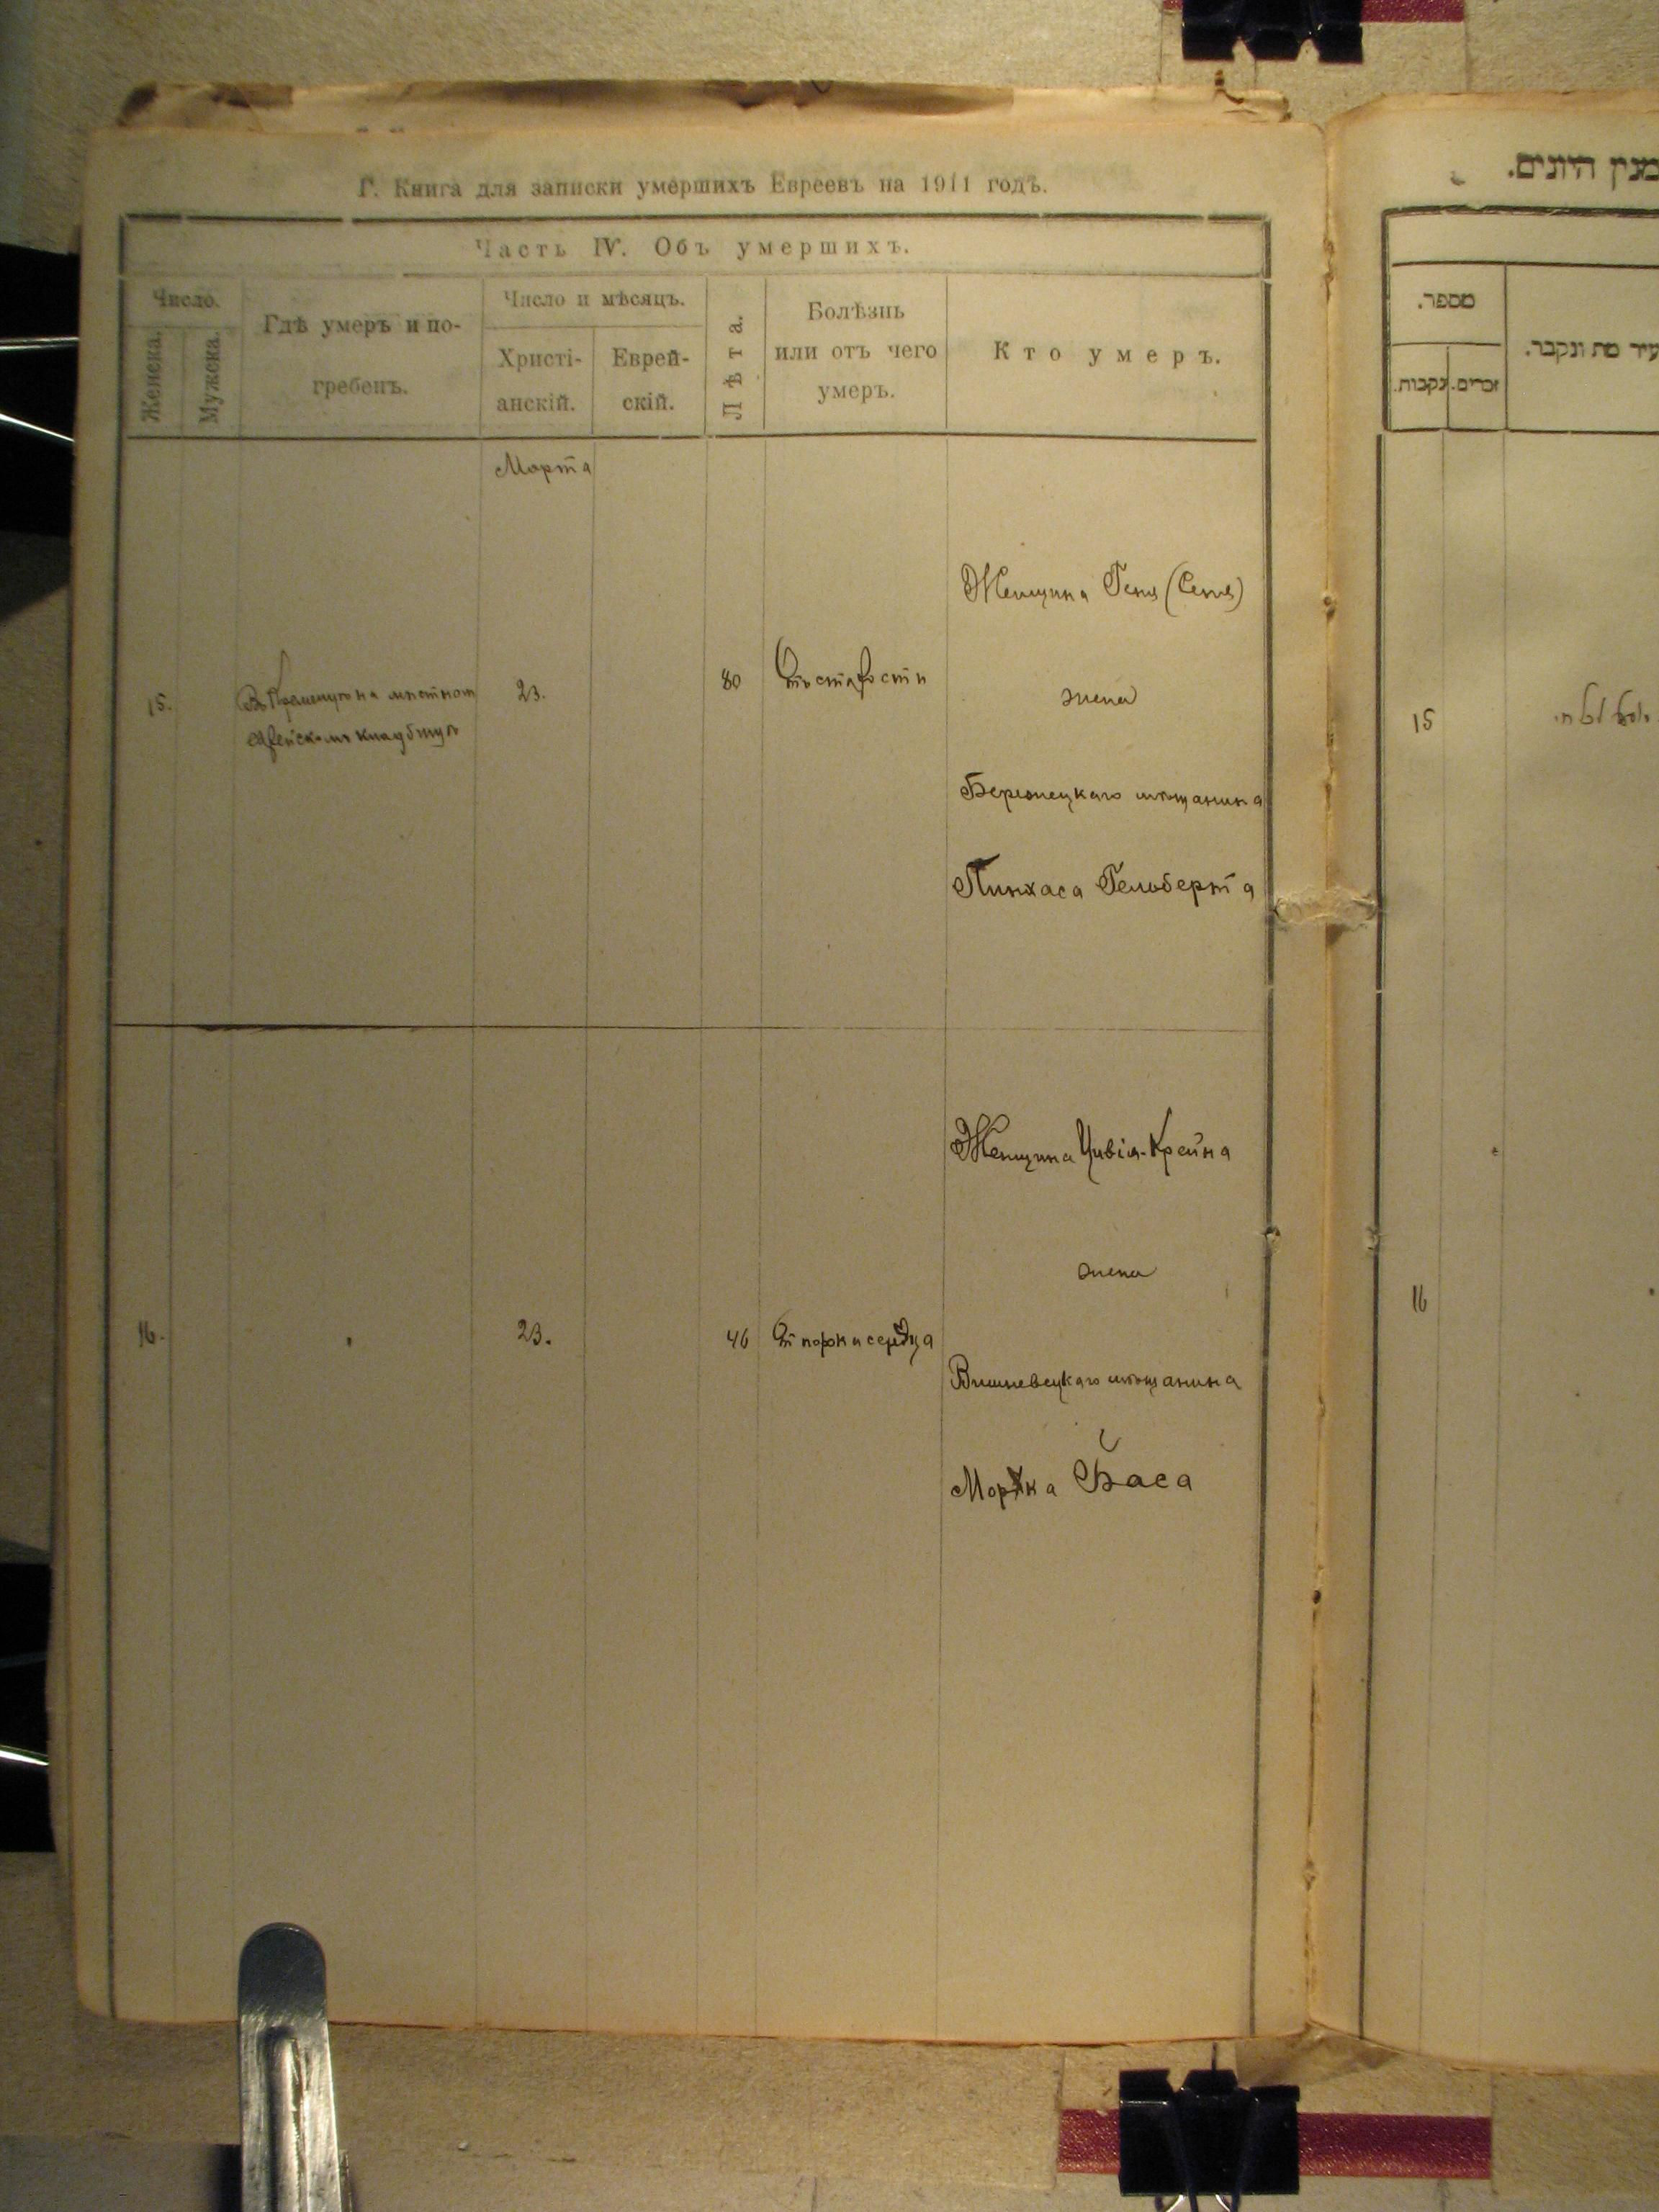 Г. Книга для записки умершихъ Евреевъ на 1911 годъ.
Часть IV. Объ умершихъ.
Число.
Женска.
Мужеска.
Гдѣ умеръ и по-
гребенъ.
Число и мѣсяцъ.
Христі-
анскій.
Еврей-
скій.
Лѣта.
Болѣзнь
или отъ чего
умеръ.
Кто умеръ.
Марта
15.
Въ Кременцѣ на мѣстном
еврейскомъ кладбищѣ
23.
80
Отъ старости
Женщина Геня (Сеня)
жена
Бережецкаго мѣщанина
Пинхаса Гельберта
16.
23.
46
От порка сердца
Женщина Цивія-Крейна
жена
Вишневецкаго мѣщанина
Моржка Баса
מנין היונים.
מספר.
נקבות.
זכרים.
עיר מת ונקבר.
15
16